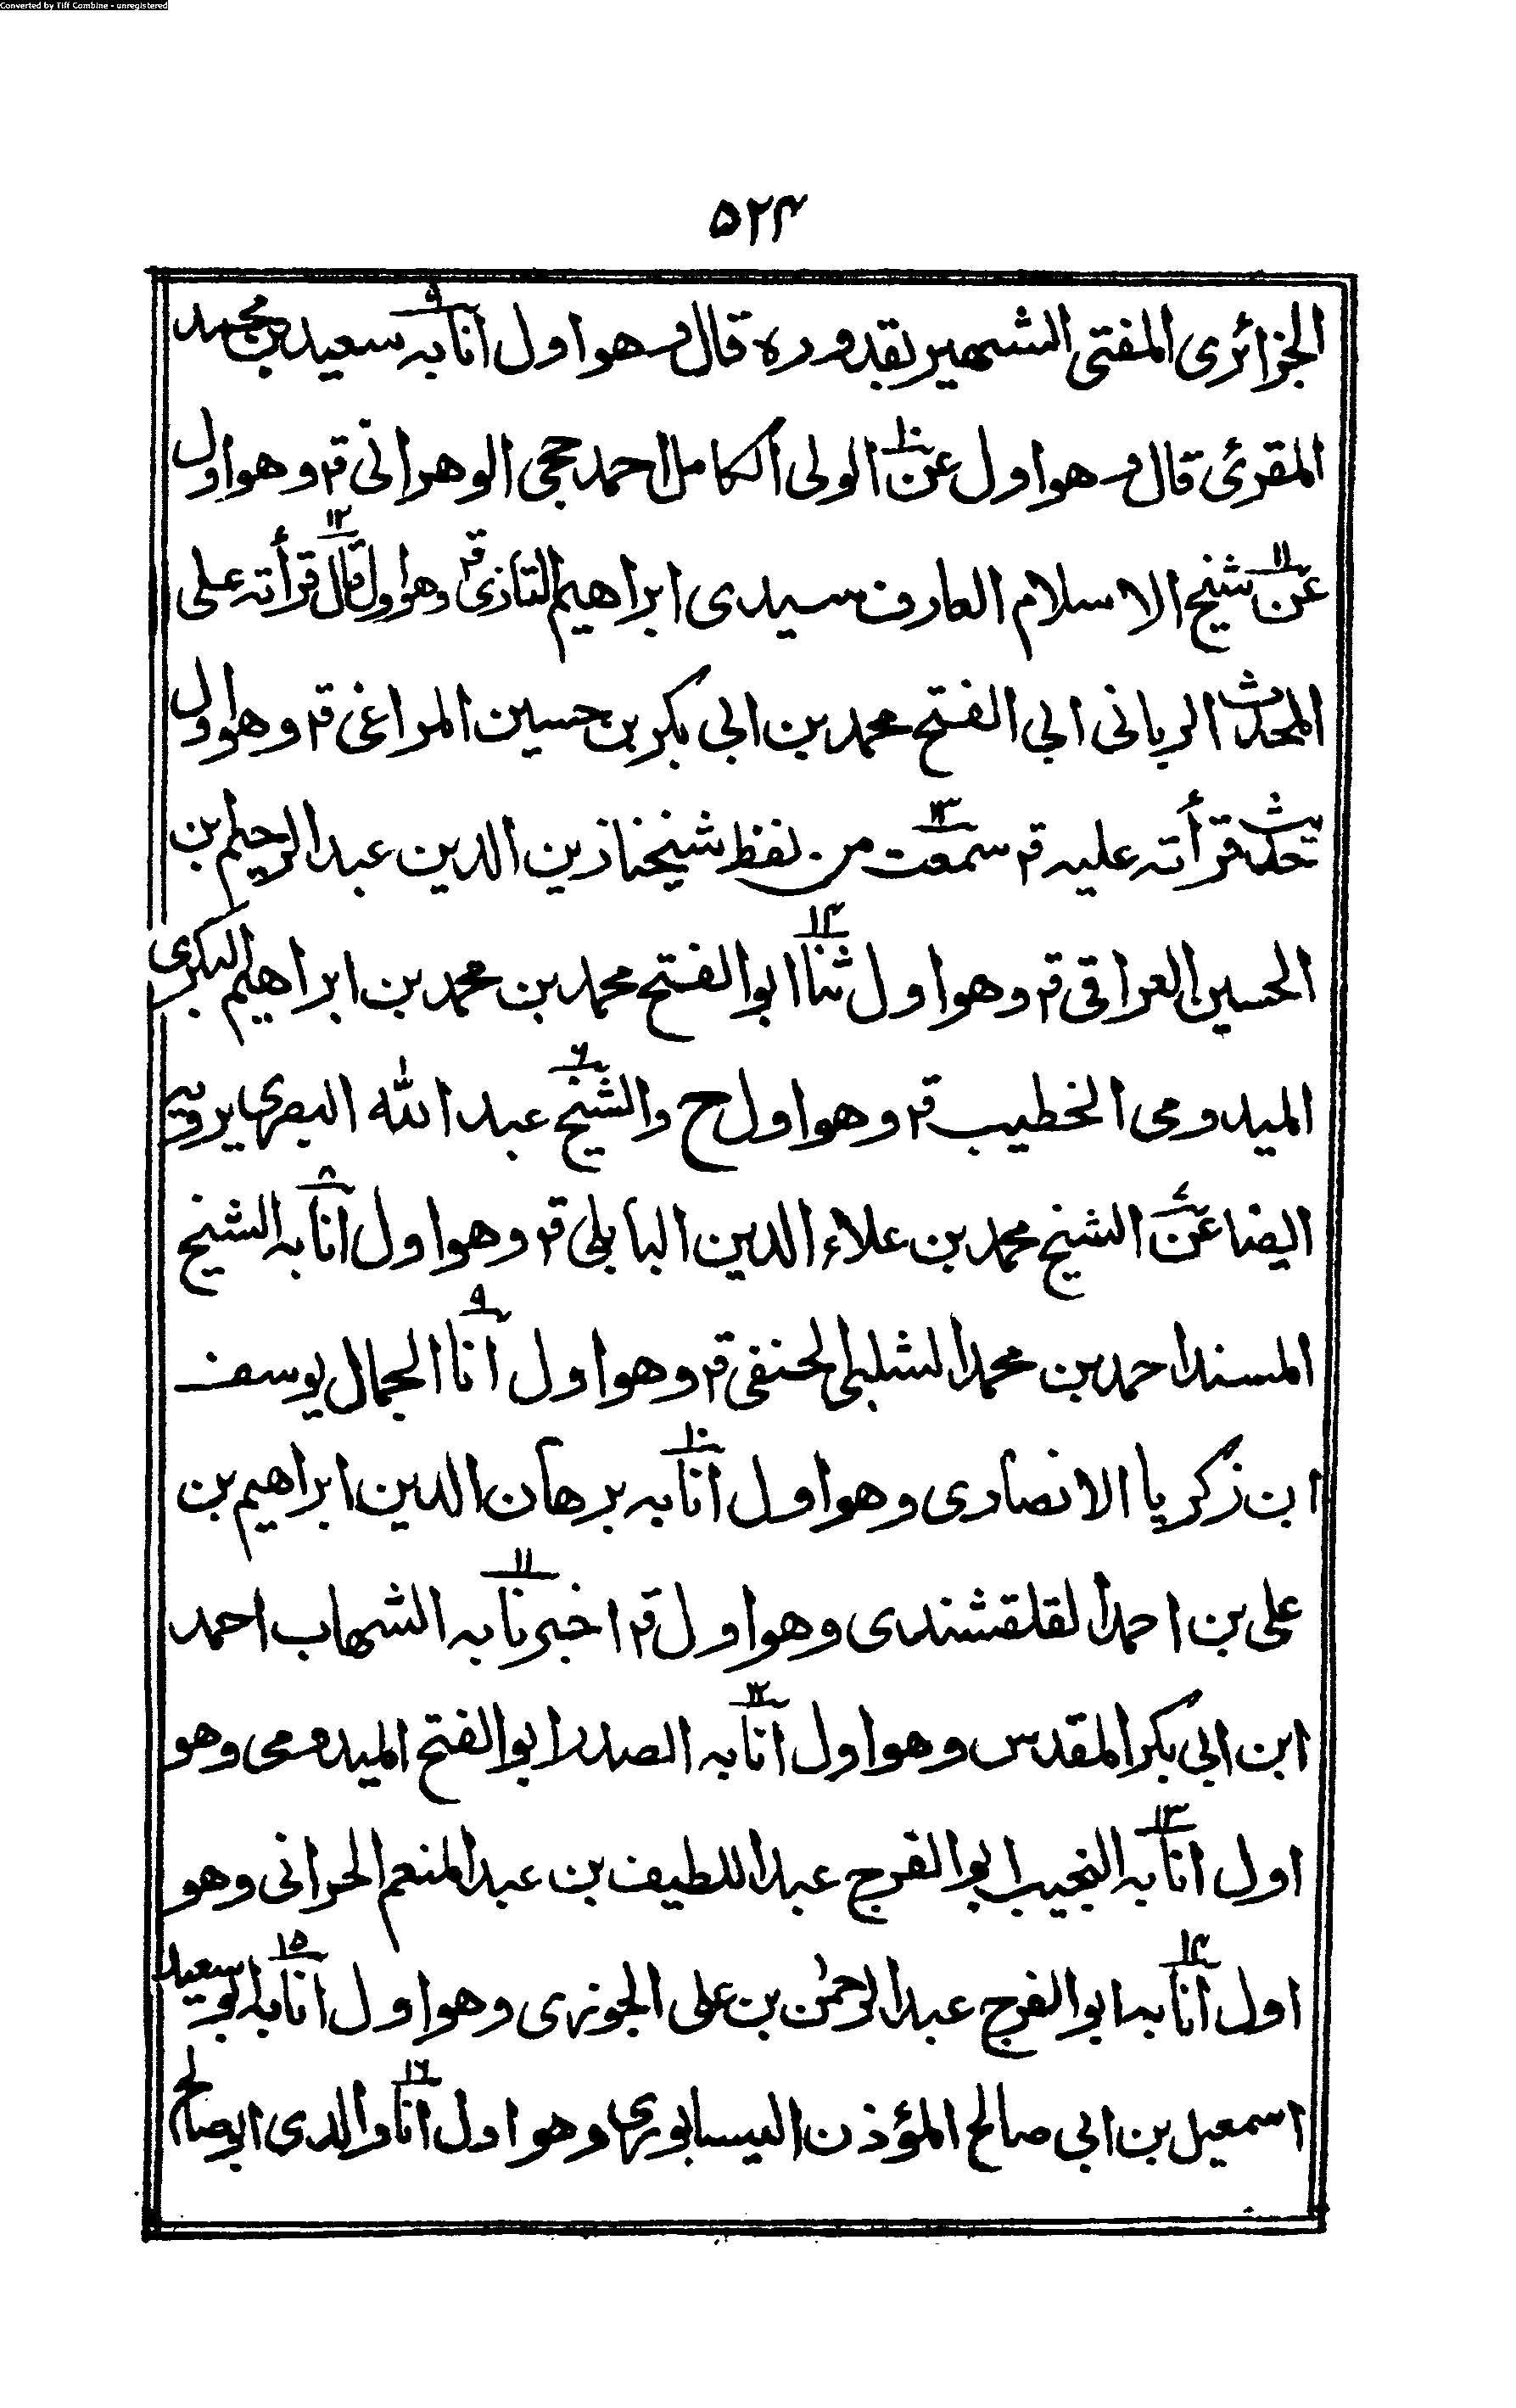 Converted by Tiff Combine - unregistered
۵۲۴
الجزائری المفتی الشهیر بقدوره قال وهو اول انا به ۹ سعید بن محمد
المقرئ قال وهو اول عن ۱۰ الولی الکامل احمد حجی الوهرانی قر وهو اول
عن ۱۱ شیخ الاسلام العارف سیدی ابراهیم التازی قر وهو اول قال ۱۲ قرأته علی
المحدث الربانی ابی الفتح محمد بن ابی بکر بن حسین المراغی قر وهو اول
حدیث قرأته علیه قر سمعت ۱۳ من لفظ شیخنا زین الدین عبد الرحیم بن
الحسین العراقی قر وهو اول ثنا ۱۴ ابو الفتح محمد بن محمد بن ابراهیم البکری
المیدومی الخطیب قر وهو اول ح والشیخ ۶ عبد الله البصری یرویه
ایضا عن ۷ الشیخ محمد بن علاء الدین البابلی قر وهو اول انا به ۸ الشیخ
المسند احمد بن محمد الشلبی الحنفی قر وهو اول انا ۹ الجمال یوسف
ابن زکریا الانصاری وهو اول انا به ۱۰ برهان الدین ابراهیم بن
علی بن احمد القلقشندی وهو اول قر اخبرنا به ۱۱ الشهاب احمد
ابن ابی بکر المقدس وهو اول انا به ۱۲ الصدر ابو الفتح المیدومی وهو
اول انا به ۱۳ النجیب ابو الفرج عبد اللطیف بن عبد المنعم الحرانی وهو
اول انا به ۱۴ ابو الفرج عبد الرحمٰن بن علی الجوزی وهو اول انا به ۱۵ ابو سعید
اسمعیل بن ابی صالح المؤذن النیسابوری وهو اول انا ۱۶ والدی ابو صالح